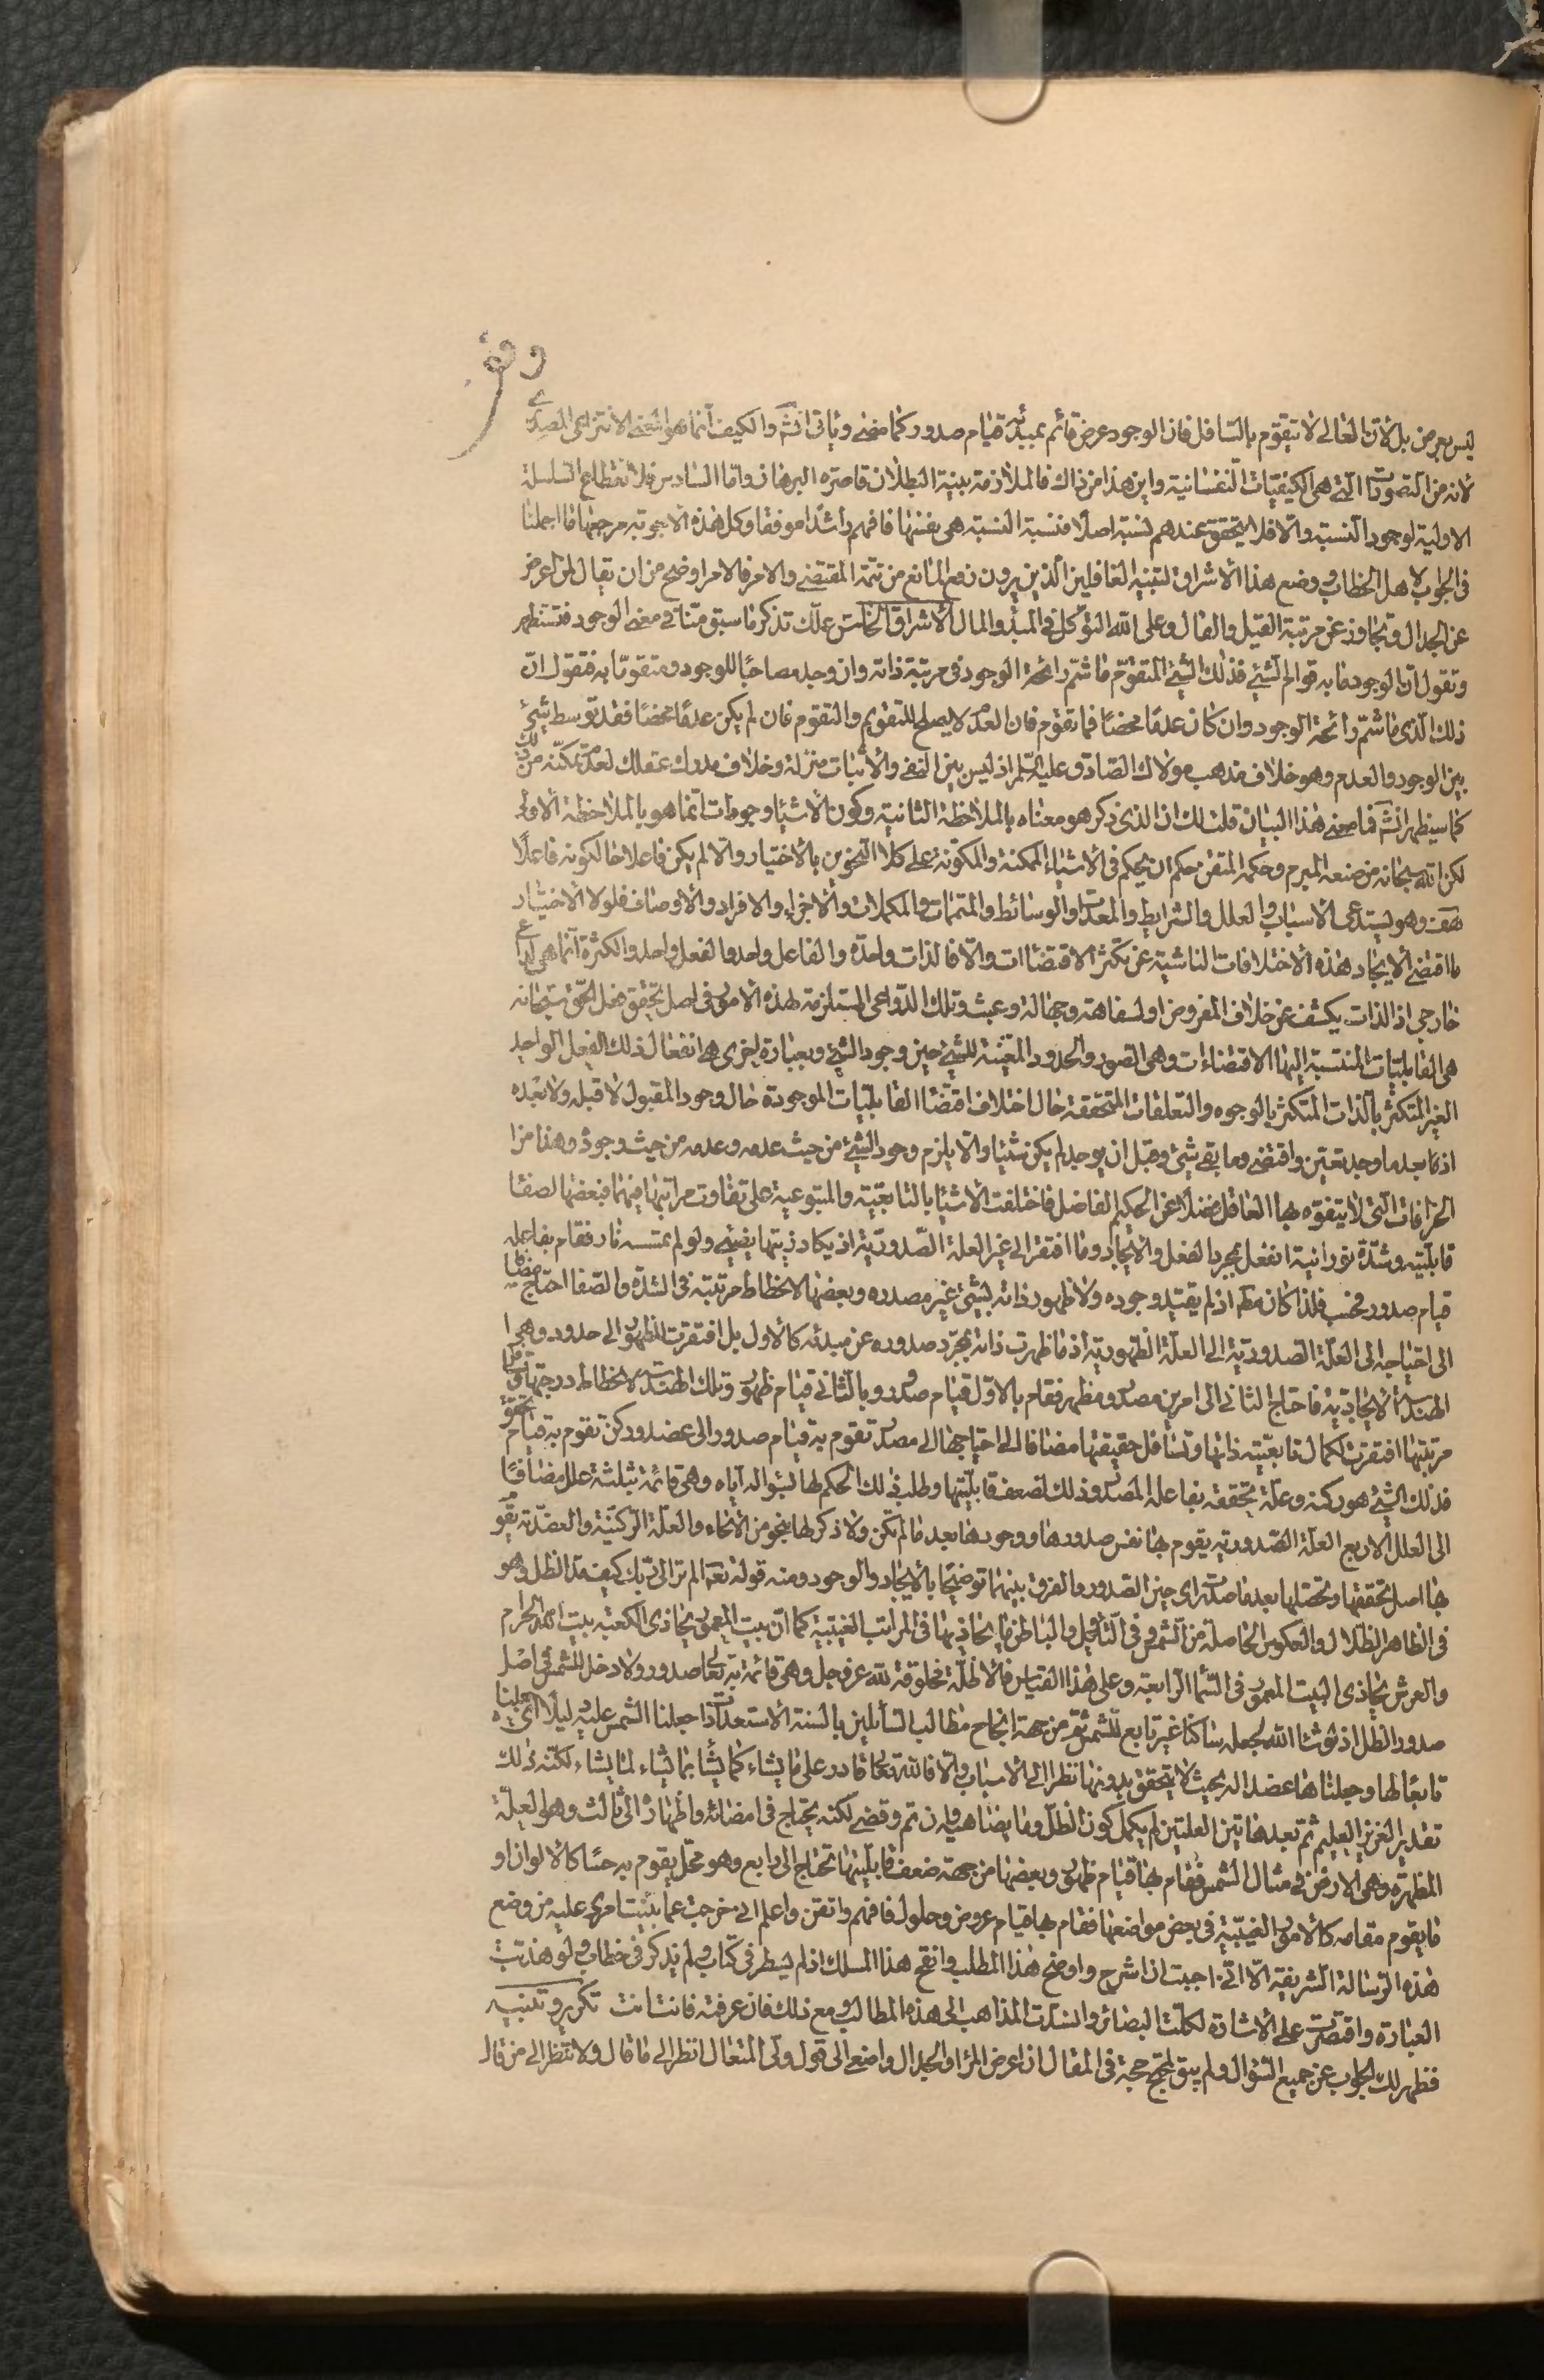 وقف
ليس بعرض بل لان العالى لا يتقوم بالسافل فان الوجود عرض قائم بمبدئه قيام صدور كما مضى وياتى انشّ والكيف انما هو المعنى الانتزاعى المصدرى
لانه من التصورات التى هى الكيفيات النفسانية واين هذا من ذاك فالملازمة بينة البطلان قاصرة البرهان واما السادس فلانقطاع السلسلة
الاولية لوجود النسبة والا فلا يتحقق عندهم نسبة اصلا فنسبة النسبة هى بنفسها فافهم راشدا موفقا وكل هذه الاجوبة مرجعها ما اجملنا
فى الجواب لاهل الخطاب ووضع هذا الاشراق لتنبيه الغافلين الذين يرون رفع المانع من تتمة المقتضى والامر فالامر اوضح من ان يقال لمن اعرض
عن الجدال وتجاوز عن مرتبة القيل والقال وعلى الله التوكل فى المبدء والمال الاشراق الخامس علّك تذكر ما سبق منا فى معنى الوجود فتستظهر
وتقول ان الوجود ما به قوام الشئ فذلك الشئ المتقوم ما شم رائحة الوجود فى مرتبة ذاته وان وجد مصاحبا للوجود ومتقوما به فنقول ان
ذلك الذى ما شم رائحة الوجود وان كان عدما محضا فما تقوم فان العدم لا يصلح للتقويم والتقوم فان لم يكن عدما محضا فقد توسط شئ
بين الوجود والعدم وهو خلاف مذهب مولاك الصادق عليه السلم اذ ليس بين النفى والاثبات منزلة وخلاف مدرك عقلك لعدم تمكنه من ذلك
كما سيظهر انشّ فما معنى هذا البيان قلت لك ان الذى ذكر هو معناه بالملاحظة الثانية وكون الاشياء وجودات انما هو بالملاحظة الاولى
لكن الله سبحانه من صنعه المبرم وحكمه المتقن حكم ان يحكم فى الاشياء الممكنة والمكونة على كلا النحوين بالاختيار والا لم يكن فاعلا حال كونه فاعلا
هف وهو يستدعى الاسباب والعلل والشرايط والمعدات والوسائط والمتممات والمكملات والاجزاء والافراد والاوصاف فلولا الاختيار
ما اقتضى الايجاد هذه الاختلافات الناشية عن تكثر الاقتضاات والا فالذات واحدة والفاعل واحد والفعل واحد والكثرة انما هى لداع
خارجى اذ الذات يكشف عن خلاف المفروض او لسفاهة وجهالة وعبث وتلك الدواعى المستلزمة لهذه الامور فى اصل تحقق فعل الحق سبحانه
هى القابليات المنتسبة اليها الاقتضاءات وهى الصور والحدود المعينة للشئ حين وجود الشئ وبعبارة اخرى هى انفعال ذلك الفعل الواحد
الغير المتكثر بالذات المتكثر بالوجوه والتعلقات المتحققة حال اختلاف اقتضاا القابليات الموجودة حال وجود المقبول لا قبله ولا بعده
اذ ما بعد ما وجد تعين واقتضى وما بقى شئ وقبل ان يوجد لم يكن شيئا والا يلزم وجود الشئ من حيث عدمه وعدمه من حيث وجوده وهذا من
الخرافات التى لا يتفوه بها العاقل فضلا عن الحكيم الفاضل فاختلفت الاشيا بالتابعية والمتبوعية على تفاوت مراتبها فيهما فبعضها لصفا
قابليته وشدة نورانيته انفعل بمجرد الفعل والايجاد وما افتقر الى غير العلة الصدورية اذ يكاد زيتها يضيئ ولو لم تمسسه نار فقام بفاعله
قيام صدور فحسب فلذا كان مطهر اذ لم يقيد وجوده ولا ظهور ذاته بشئ غير مصدره وبعضها لانحطاط مرتبته فى الشدة والصفا احتاج مضافا
الى احتياجه الى العلة الصدورية الى العلة الظهورية اذ ما ظهرت ذاته بمجرد صدوره عن مبدئه كالاول بل افتقرت للظهور الى حدود وهى
الهندسة الايجادية فاحتاج الثانى الى امرين مصدر ومظهر فقام بالاول قيام صدور وبالثانى قيام ظهور وتلك الهندسة لانحطاط درجتها وقلة
مرتبتها افتقرت لكمال تابعيته ذاتها وتسافل حقيقتها مضافا الى احتياجها الى مصدر تقوم به قيام صدور الى عضد وركن تقوم به قيام تحقق
فذلك الشئ هو ركنه وعلة تحققه بفاعله المصدر وذلك لضعف قابليتها وطلب ذلك الحكم لها لسؤاله اياه وهى قائمة بثلثة علل مضافا
الى العلل الاربع العلة الصدورية يقوم بها نفس صدورها ووجودها بعد ما لم تكن ولا ذكر لها بنحو من الانحاء والعلة الركنية والعضدية تقو
بها اصل تحققها وتحصلها بعد ما صدرت اى حين الصدور والفرق بينهما توضيحا بالايجاد والوجود ومنه قوله تعه الم تر الى ربك كيف مد الظل وهو
فى الظاهر الظلال والعكوس الحاصلة من الشمس وفى التاويل والباطن ما يحاذيها فى المراتب الغيبية كما ان بيت المعمور يحاذى الكعبة بيت الله الحرام
والعرش يحاذى البيت المعمور فى السما الرابعة وعلى هذا القياس فالاظلة مخلوقة لله عز وجل وهى قائمة به تعالى صدور ولا دخل للشمس فى اصل
صدور الظل اذ لو شاء الله لجعله ساكنا غير تابع للشمس ثم من جهة انجاح مطالب السائلين بالسنة الاستعدادات جعلنا الشمس عليه دليلا اى جعلناه
تابعا لها وجعلناها عضدا له بحيث لا يتحقق بدونها نظرا الى الاسباب والا فالله تعالى قادر على ما يشاء كما يشأ بما يشاء لما يشاء لكنه ذلك
تقدير العزيز العليم ثم بعد هاتين العلتين لم يكمل كون الظل وما يضاهيه وان تم وقضى لكنه يحتاج فى امضائه واظهاره الى ثالث وهو العلة
المظهرة وهى الارض فى مثال الشمس فقام بها قيام ظهور وبعضها من جهة ضعف قابليتها تحتاج الى رابع وهو محل يقوم به حسا كالالوان او
ما يقوم مقامه كالامور الغيبية فى بعض مواضعها فقام بها قيام عروض وحلول فافهم واتقن واعلم انى خرجت عما بنيت امرى عليه من وضع
هذه الرسالة الشريفة الا انى احببت ان اشرح واوضح هذا المطلب وانقح هذا المسلك اذ لم يسطر فى كتاب ولم يذكر فى خطاب ولو هذبت
العبارة واقتصرت على الاشارة لكلت البضائر وانسدت المذاهب الى هذه المطالب ومع ذلك فان عرفته فانت انت تكرير وتنبيه
فظهر لك الجواب عن جميع السؤال ولم يبق لمحتج حجة فى المقال ان اعرض المراء والجدال واصغ الى قول ولى المتعال انظر الى ما قال ولا تنظر الى من قال